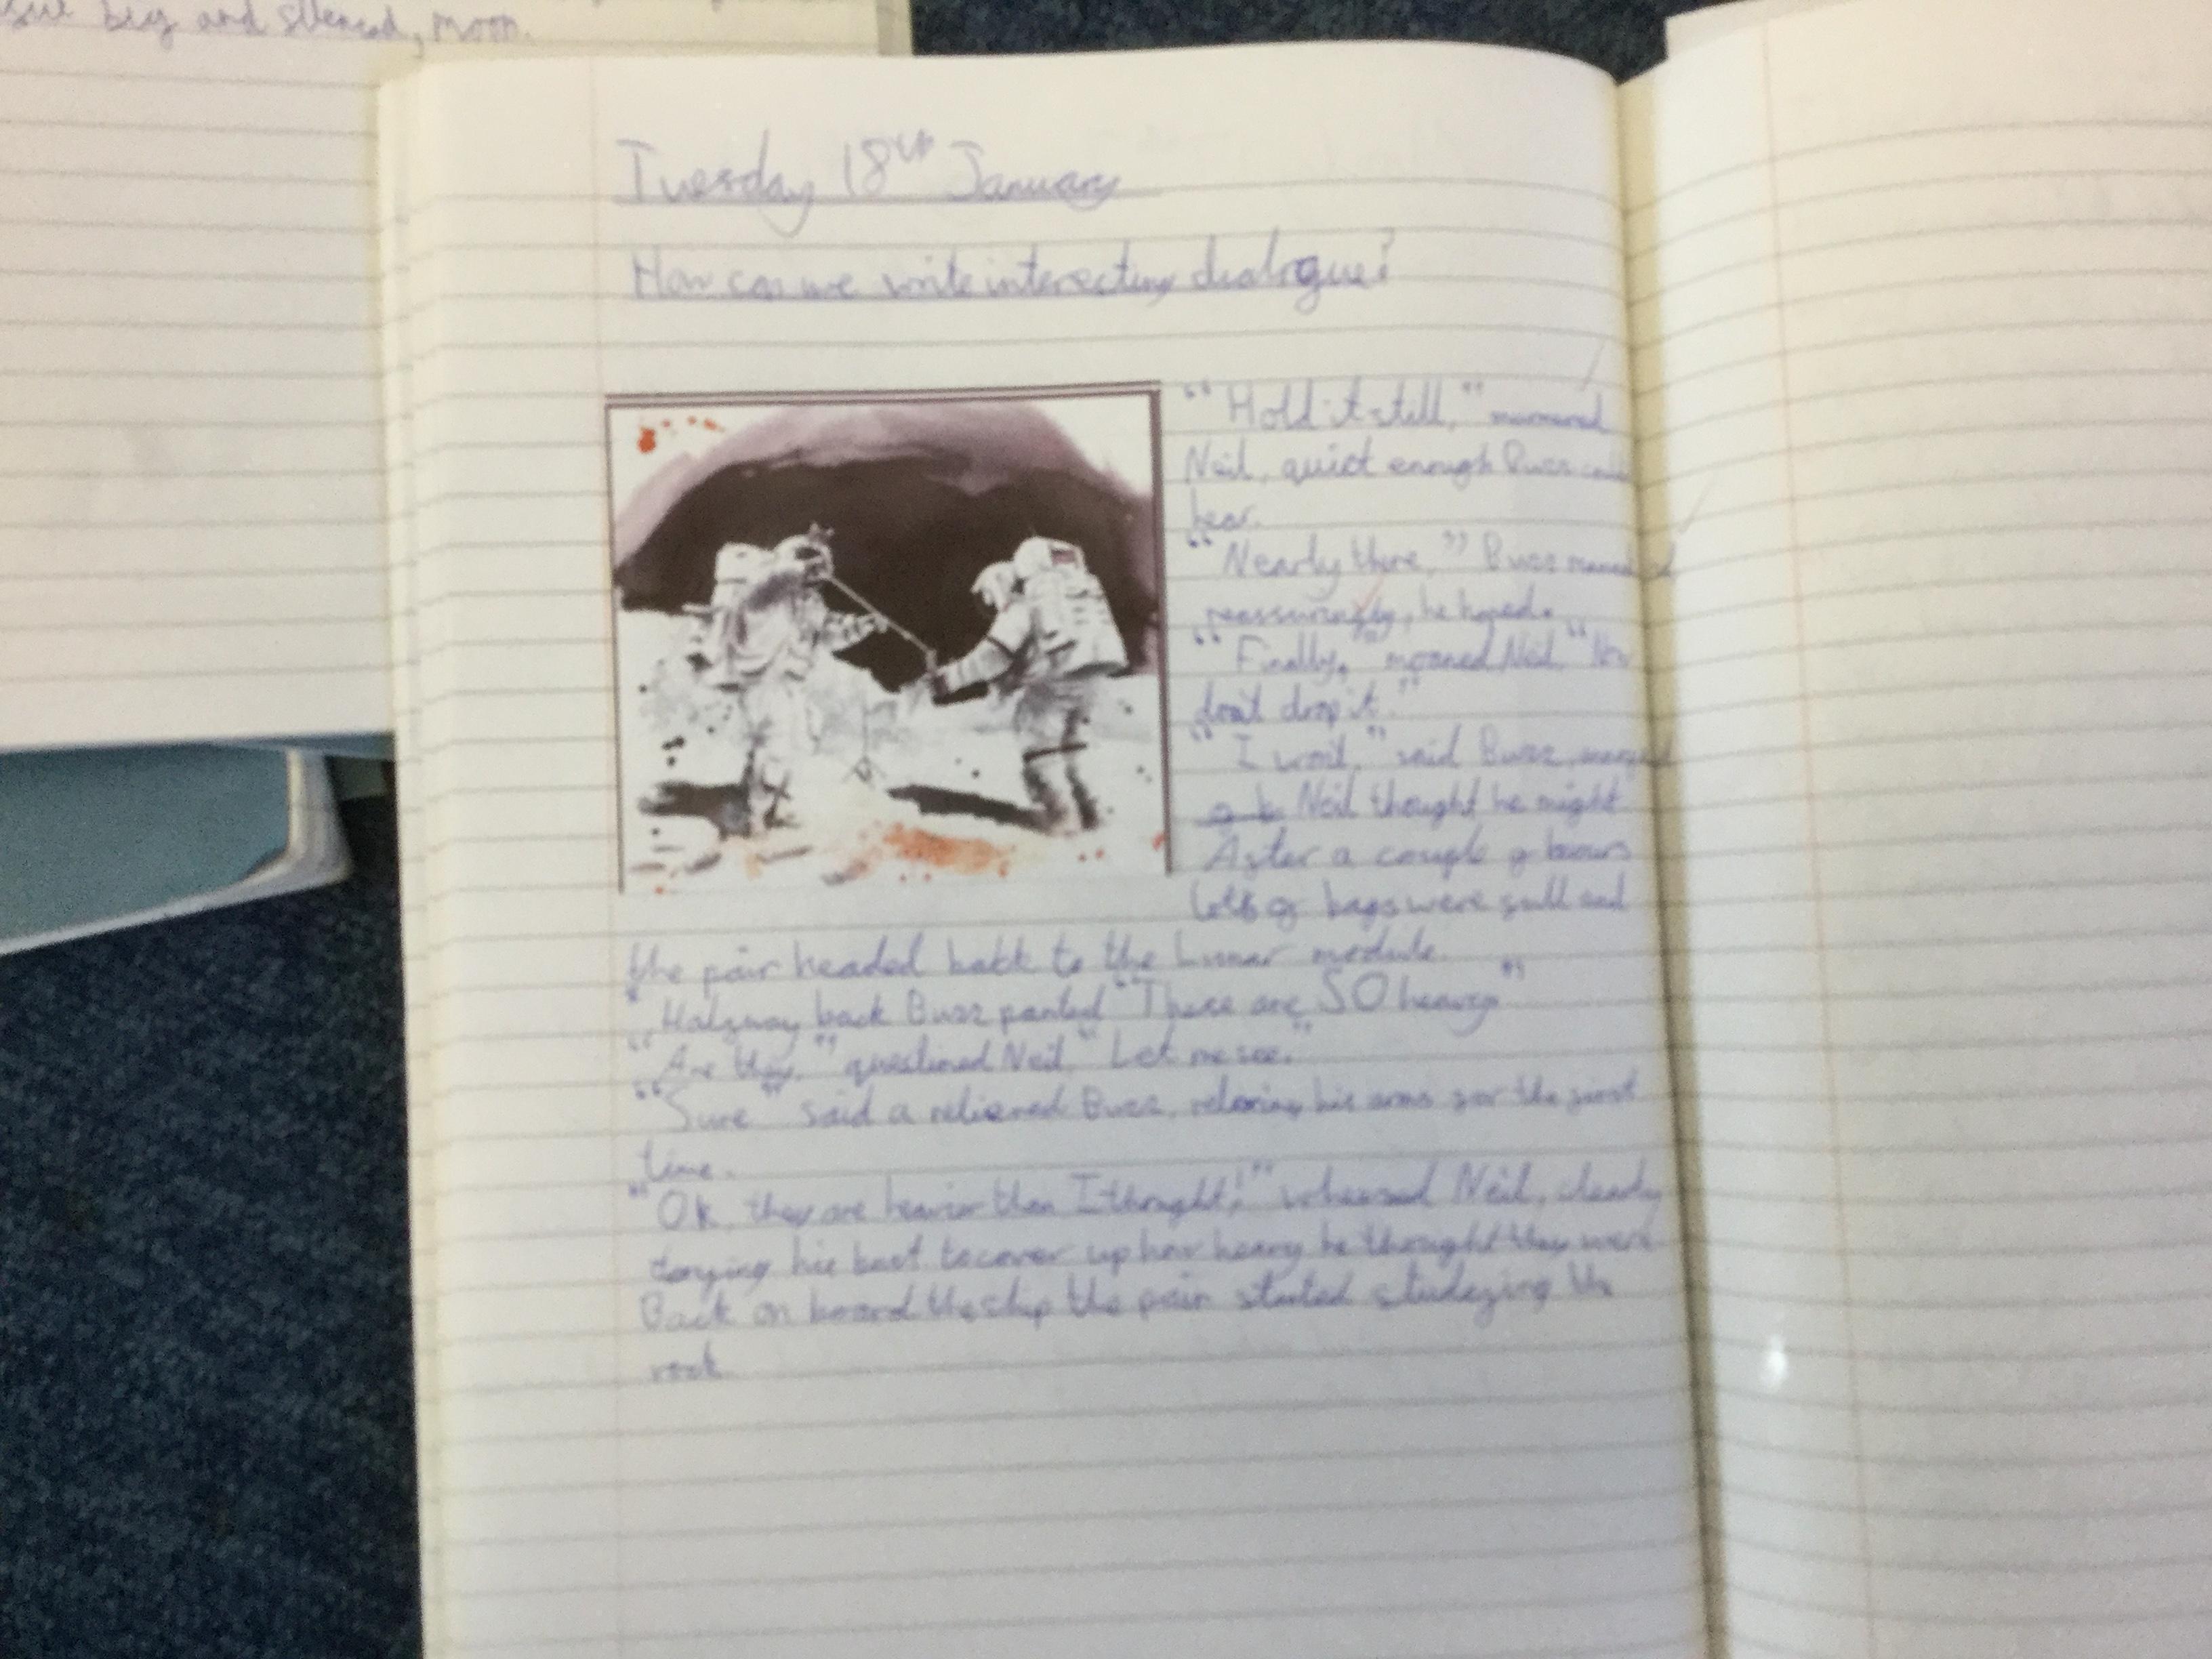 big and silenced, moon.
Tuesday 18th January
How can we write interesting dialogue?
"Hold it still," murmured
Neil, quiet enough Buzz could
hear.
"Nearly there," Buzz
reassuringly, he hoped.
"Finally," moaned Neil. "Now
don't drop it."
"I won't," said Buzz,
Neil thought he might
After a couple of hours
lots of bags were full and
the pair headed back to the Lunar module.
Halfway back Buzz panted "These are SO heavy"
"Are they," questioned Neil "Let me see."
"Sure" said a relieved Buzz, relaxing his arms for the first
time.
"Ok, they are heavier than I thought!" wheezed Neil, clearly
trying his best to cover up how heavy he thought they were
Back on board the ship the pair started studying the
rock